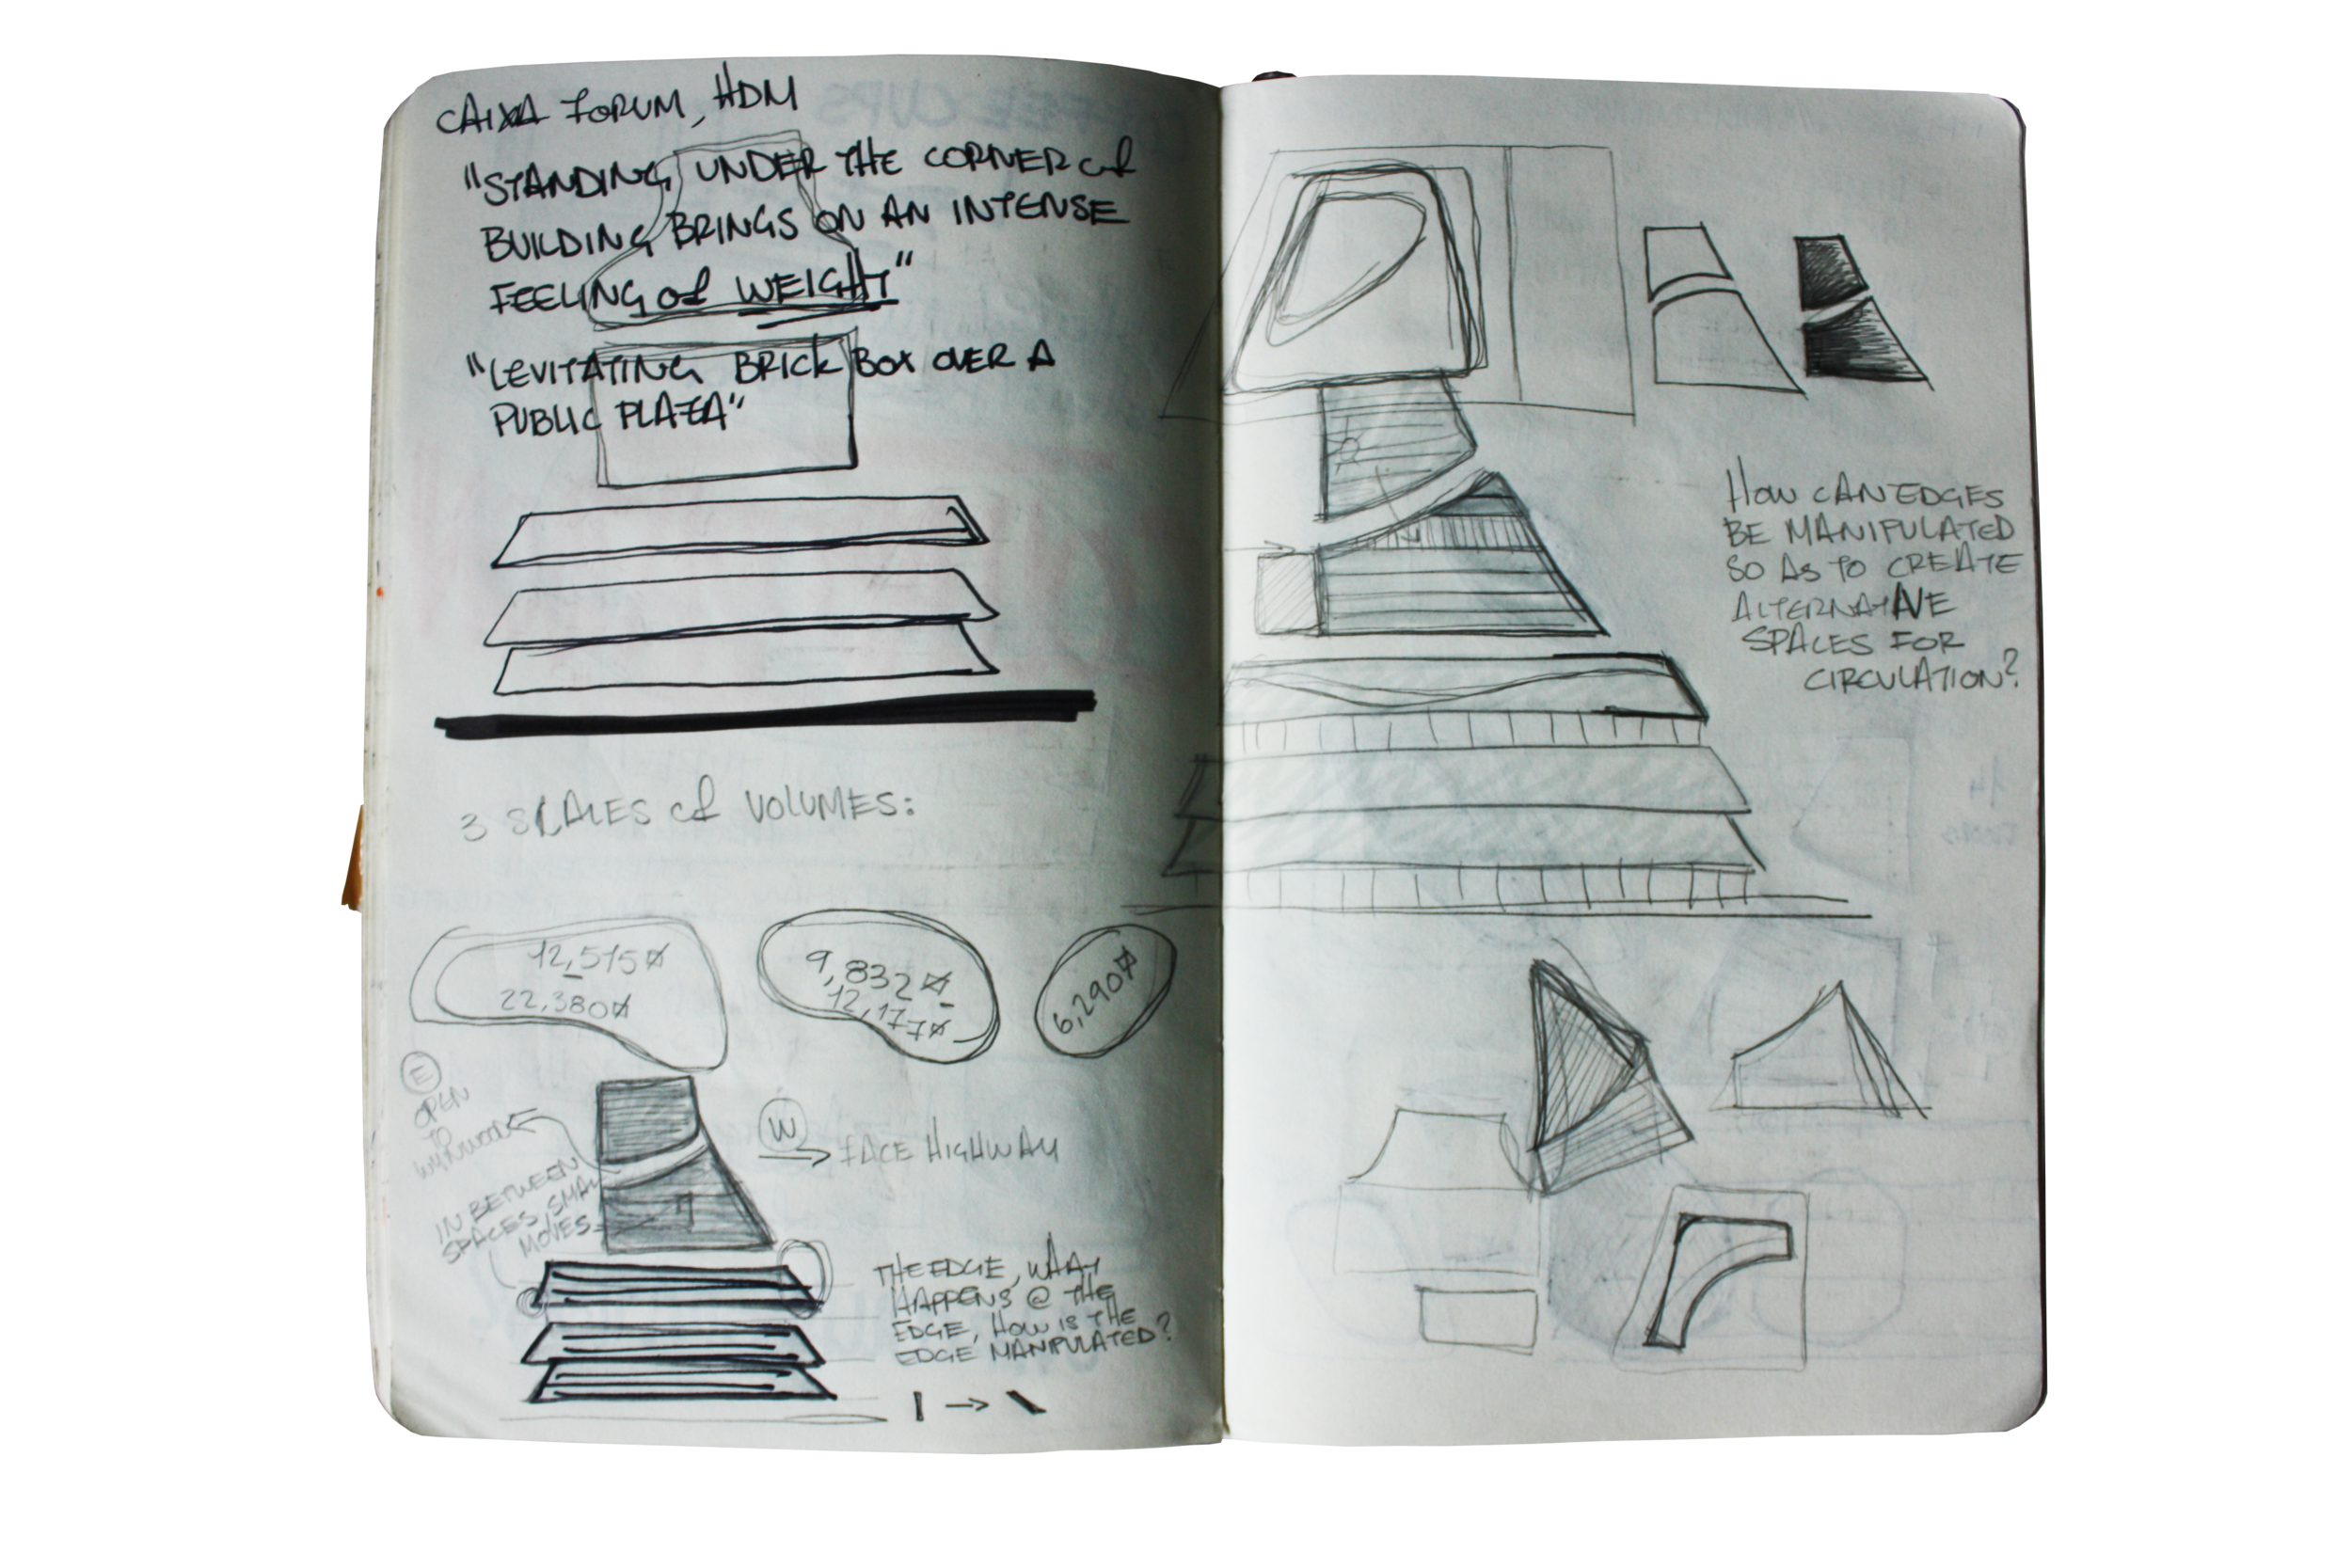 CAIXA FORUM, HDM
"STANDING UNDER THE CORNER of
BUILDING BRINGS ON AN INTENSE
FEELING of WEIGHT"
"LEVITATING BRICK BOX OVER A
PUBLIC PLAZA"
3 SCALES of VOLUMES:
12,515
22,380
9,832
12,177
6,290
E
OPEN
TO
WYNWOOD
IN BETWEEN
SPACES, SMALL
MOVES
W
→ FACE HIGHWAY
THE EDGE, WHAT
HAPPENS @ THE
EDGE, HOW IS THE
EDGE MANIPULATED?
HOW CAN EDGES
BE MANIPULATED
SO AS TO CREATE
ALTERNATIVE
SPACES FOR
CIRCULATION?